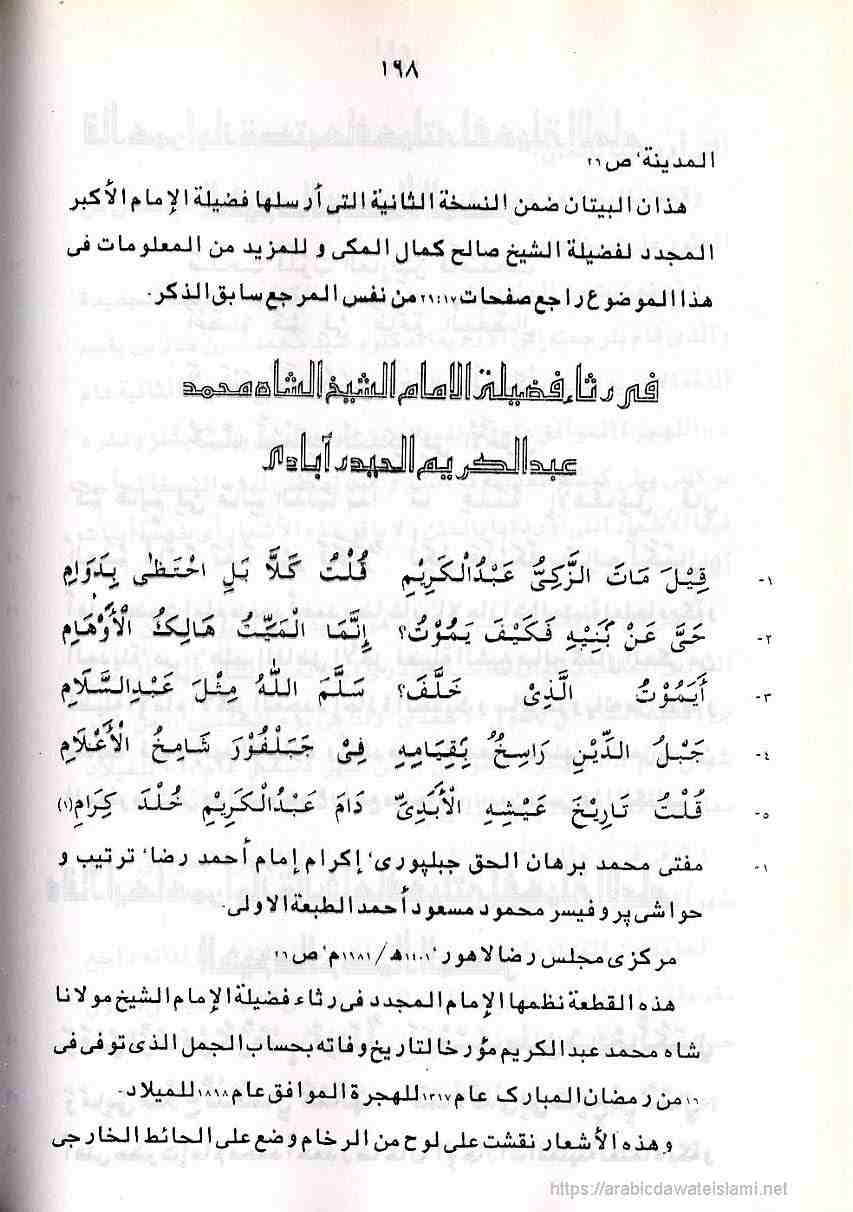 ١٩٨
المدينة، ص ٢٦
هذان البيتان ضمن النسخة الثانية التى أرسلها فضيلة الإمام الأكبر
المجدد لفضيلة الشيخ صالح كمال المكى و للمزيد من المعلومات فى
هذا الموضوع راجع صفحات ٢١:١٧ من نفس المرجع سابق الذكر.
فى رثاء فضيلة الامام الشيخ الشاه محمد
عبدالكريم الحيدرآبادى
١- قِيْلَ مَاتَ الزَّكِىُّ عَبْدُالْكَرِيْمِ قُلْتُ كَلَّا بَلِ احْتَظٰى بِدَوَامِ
٢- حَىَّ عَنْ بَنِيْهِ فَكَيْفَ يَمُوْتُ؟ إِنَّمَا الْمَيِّتُ هَالِكُ الْأَوْهَامِ
٣- أَيَمُوْتُ الَّذِىْ خَلَّفَ؟ سَلَّمَ اللّٰهُ مِثْلَ عَبْدِالسَّلَامِ
٤- جَبْلُ الدِّيْنِ رَاسِخٌ بِقِيَامِهِ فِىْ جَبَلْفُوْرَ شَامِخُ الْأَعْلَامِ
٥- قُلْتُ تَارِيْخَ عَيْشِهِ الْأَبَدِىِّ دَامَ عَبْدُالْكَرِيْمِ خُلْدَ كِرَامِ(١)
١- مفتى محمد برهان الحق جبلپورى، إكرام إمام أحمد رضا، ترتيب و
حواشى پروفيسر محمود مسعود أحمد الطبعة الاولى.
مركزى مجلس رضا لاهور، ١٤٠١هـ/١٩٨١م، ص ٢٦
هذه القطعة نظمها الإمام المجدد فى رثاء فضيلة الإمام الشيخ مولانا
شاه محمد عبدالكريم مؤرخا لتاريخ وفاته بحساب الجمل الذى توفى فى
من رمضان المبارك عام ١٣١٧ للهجرة الموافق عام ١٨٩٨ للميلاد.
و هذه الأشعار نقشت على لوح من الرخام وضع على الحائط الخارجى
https://arabicdawateislami.net